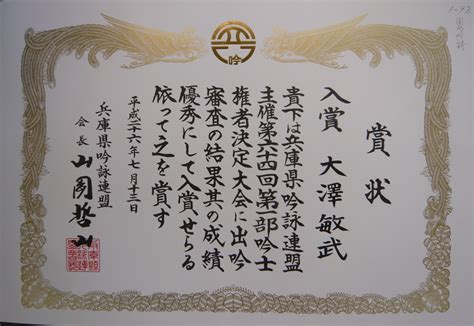 賞状
入賞 大澤敏武
貴下は兵庫県吟詠連盟
主催第六十四回第一部吟士
権者決定大会に出吟
審査の結果其の成績
優秀にして入賞せらる
依って之を賞す
平成二十六年七月十三日
兵庫県吟詠連盟
会長
吟
1-93